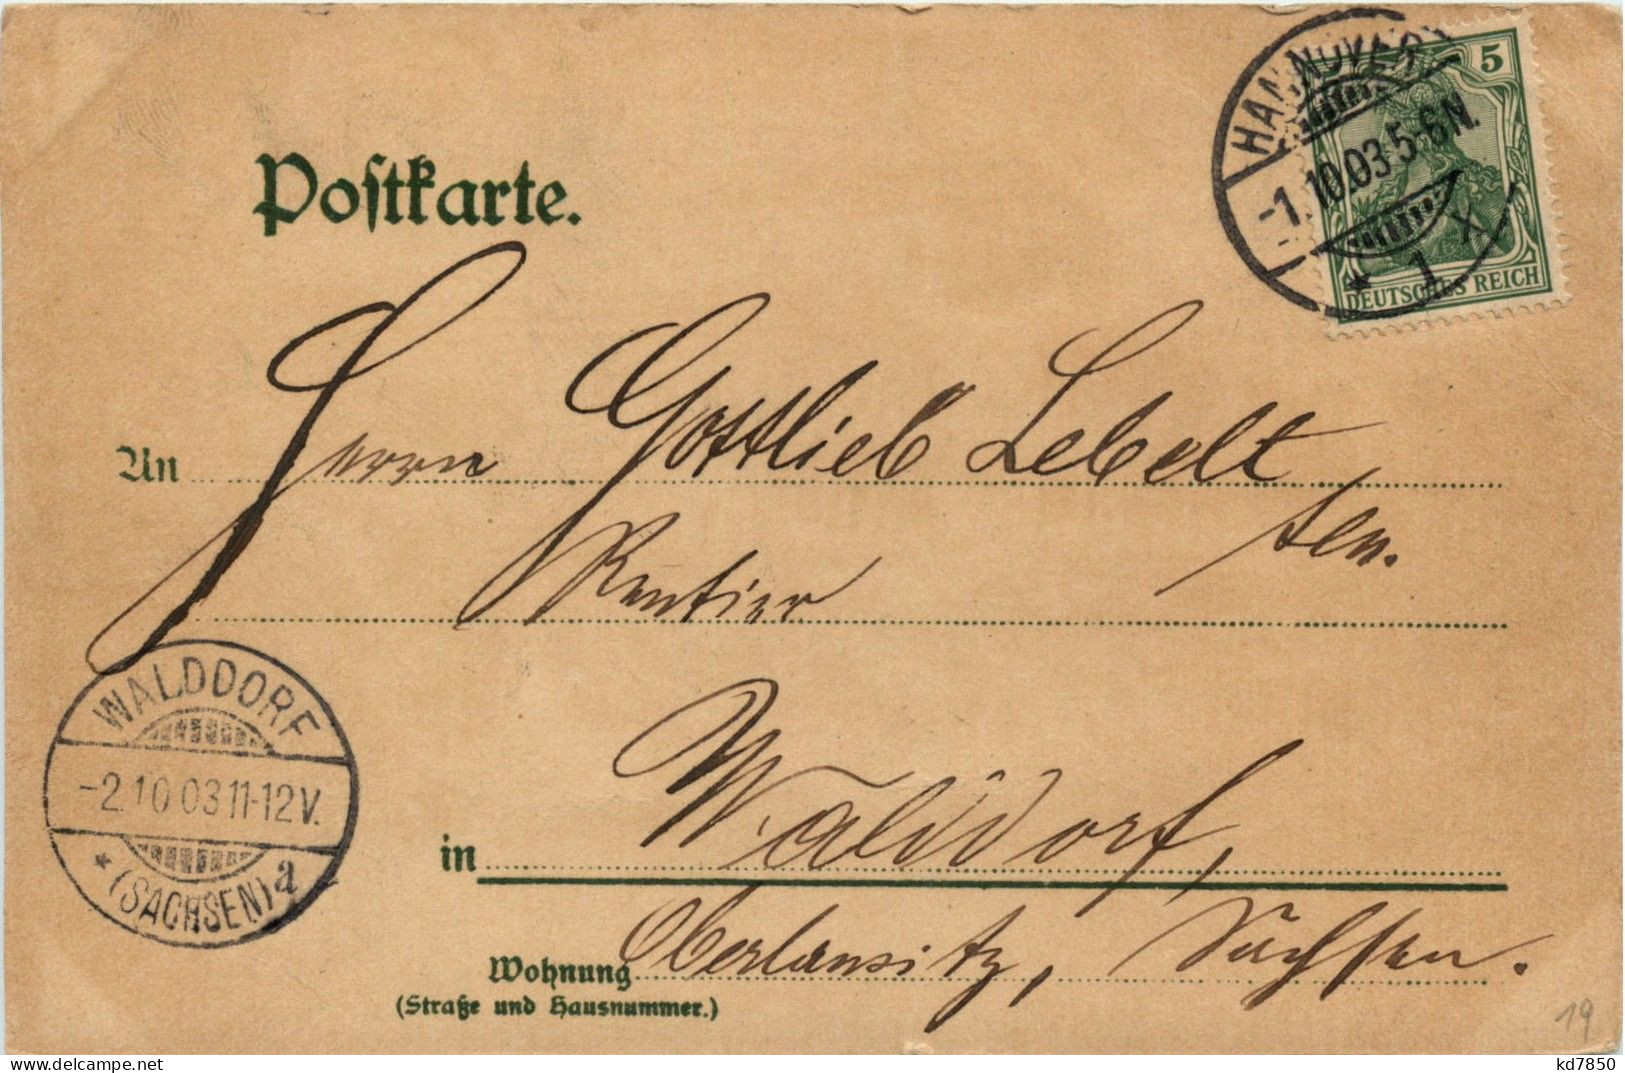 HANNOVER
-1.10.03.5-6N.
* 1 X.
5
DEUTSCHES REICH
Postkarte.
An Herrn Gottlieb Lebelt
sen.
Rentier
WALDDORF
-2.10.03 11-12V.
* (SACHSEN) a
in Walddorf,
Wohnung Oberlausitz, Sachsen.
(Straße und Hausnummer.)
19
Delcampe.net
kd7850